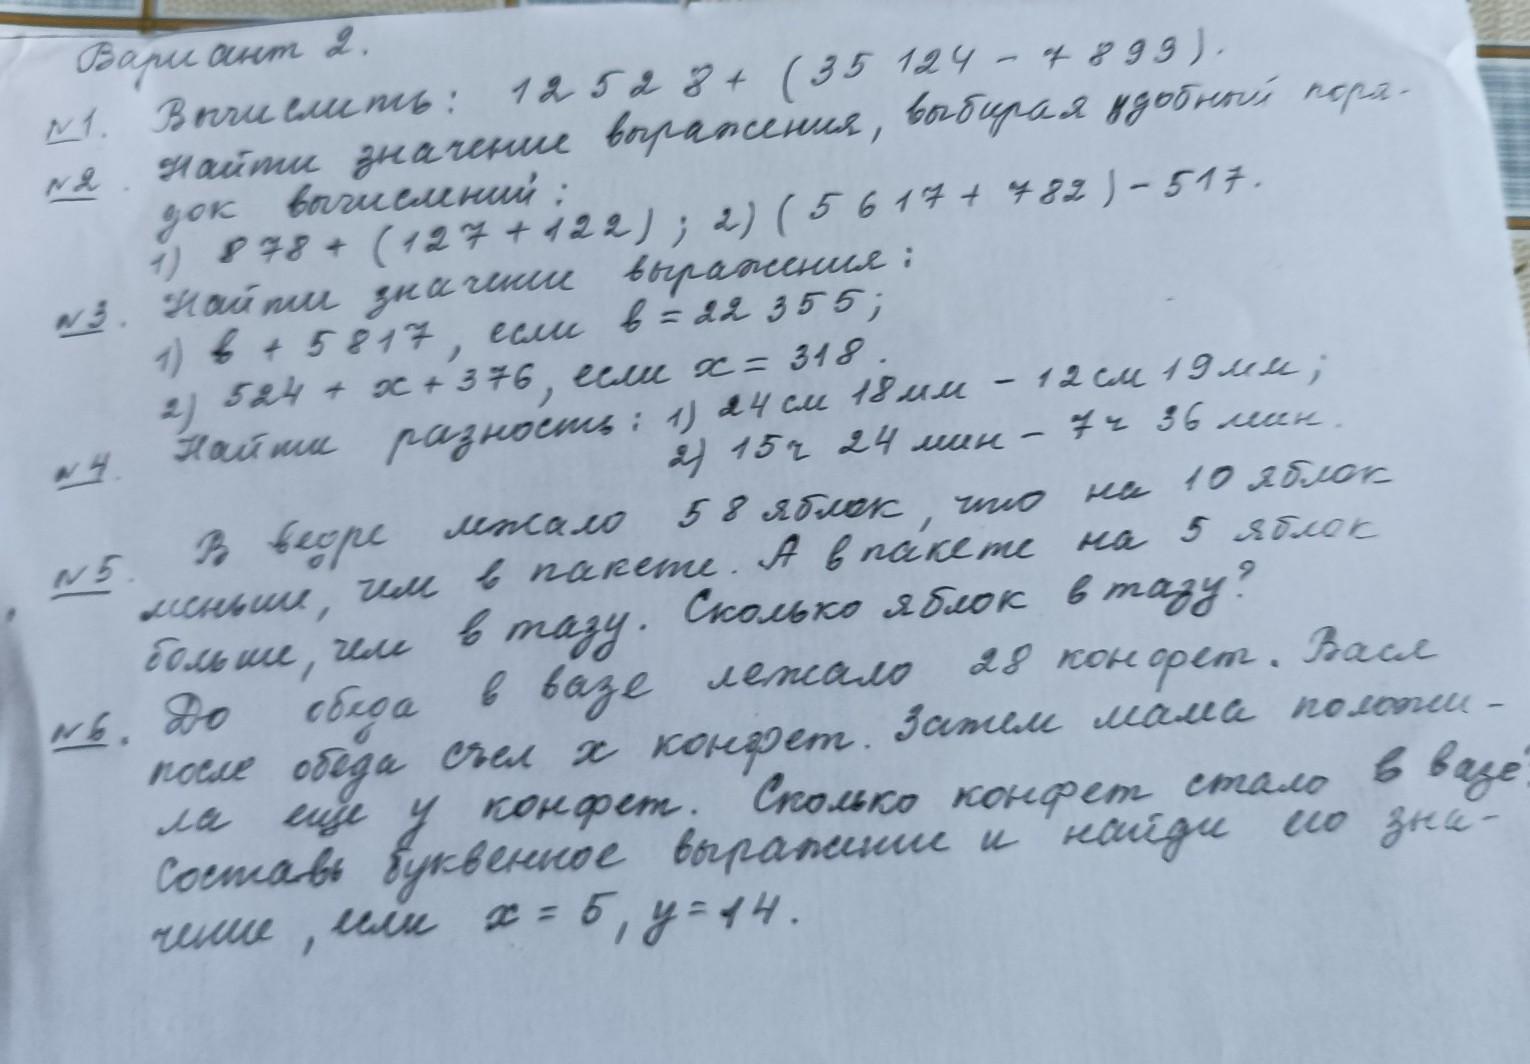 Вариант 2.
№1. Вычислить: 12 528 + (35 124 - 7 899).
№2. Найти значение выражения, выбирая удобный поря-
док вычислений:
1) 878 + (127 + 122); 2) (5 617 + 782) - 517.
№3. Найти значение выражения:
1) в + 5 817, если в = 22 355;
2) 524 + x + 376, если x = 318.
№4. Найти разность: 1) 24 см 18 мм - 12 см 19 мм;
2) 15 ч 24 мин - 7 ч 36 мин.
№5. В ведре лежало 58 яблок, что на 10 яблок
меньше, чем в пакете. А в пакете на 5 яблок
больше, чем в тазу. Сколько яблок в тазу?
№6. До обеда в вазе лежало 28 конфет. Вася
после обеда съел x конфет. Затем мама положи-
ла еще y конфет. Сколько конфет стало в вазе?
Составь буквенное выражение и найди его зна-
чение, если x = 5, y = 14.